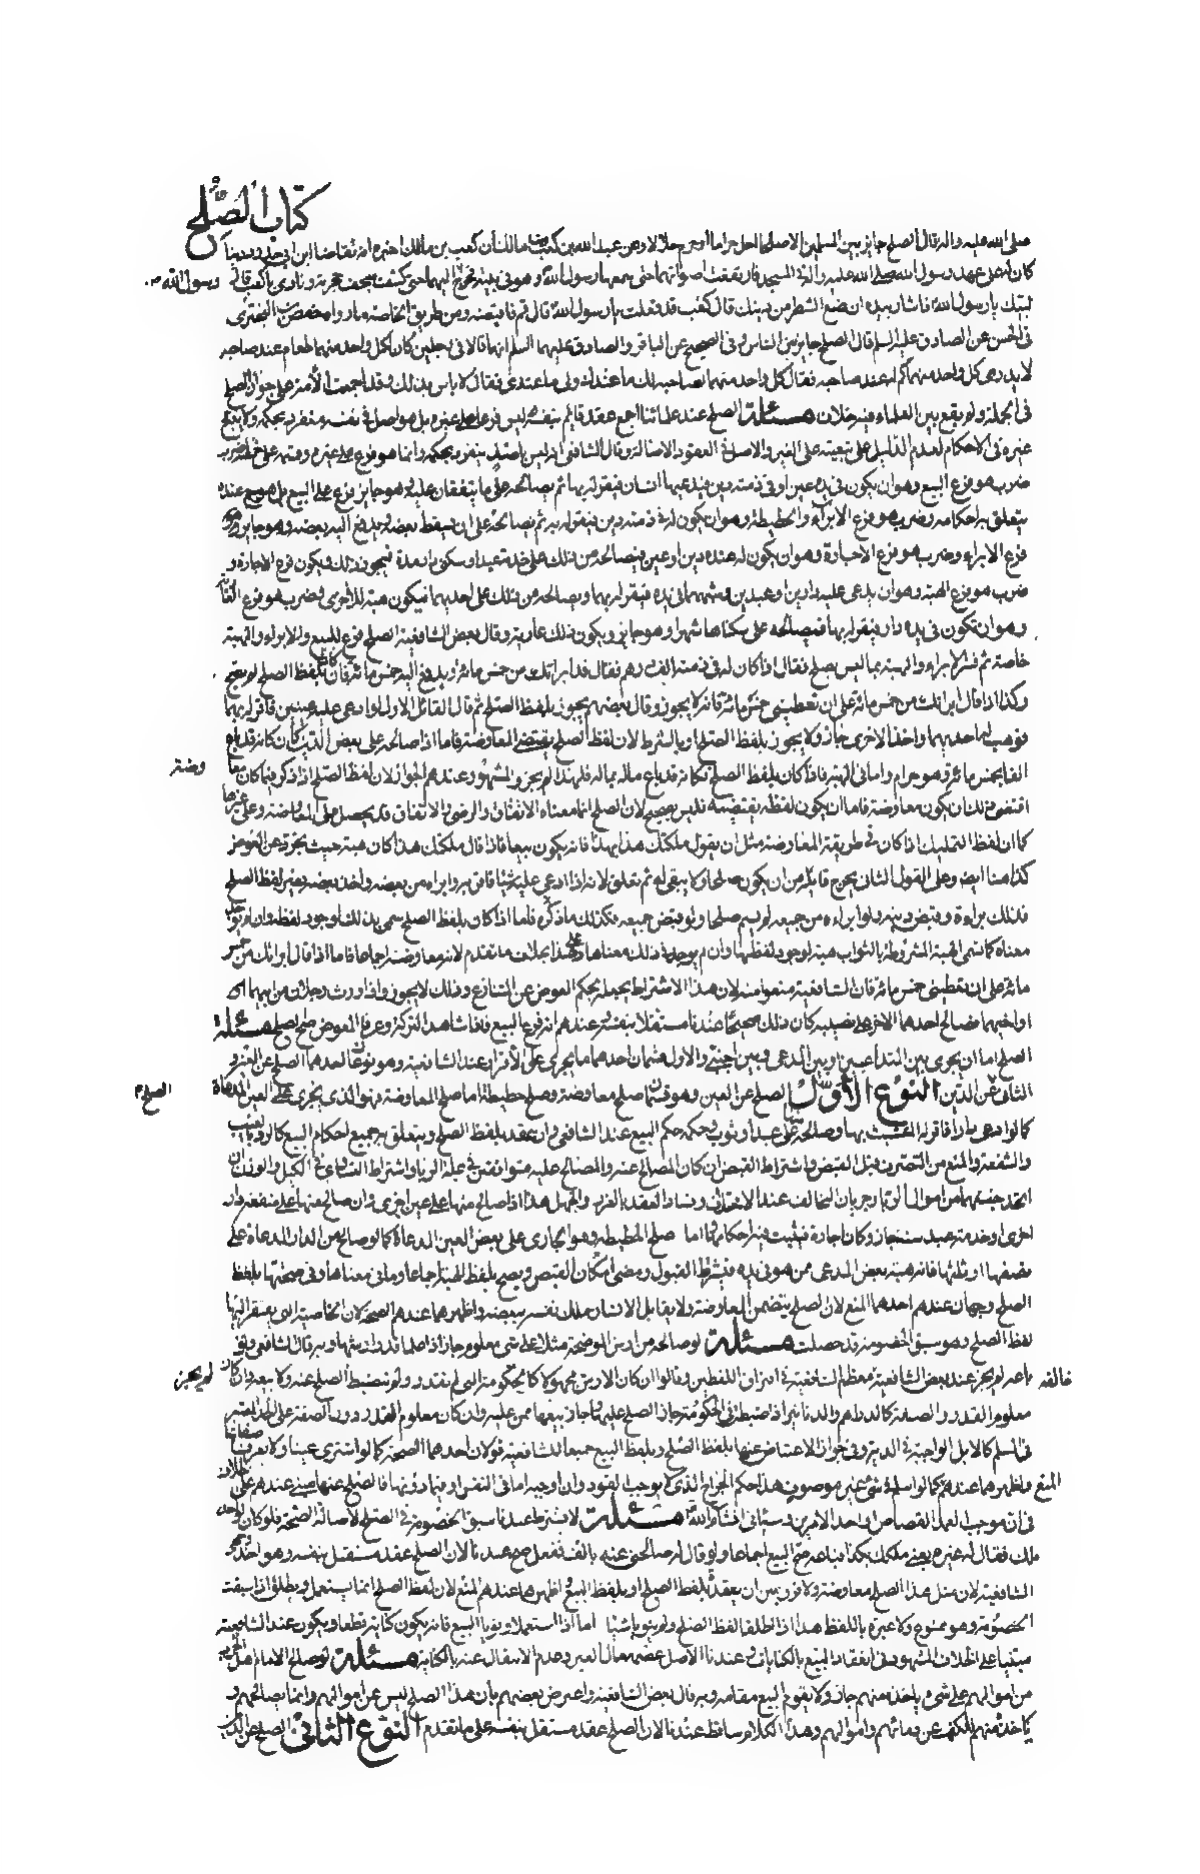 كتاب الصلح
صلى الله عليه واله قال الصلح جايز بين المسلمين الا صلحا احل حراما او حرم حلالا وعن عبد الله بن كعب بن مالك ان كعب بن مالك اخبره انه تقاضا ابن ابي حدرد دينا
كان له على عهد رسول الله صلى الله عليه واله في المسجد فارتفعت اصواتهما حتى سمعها رسول الله وهو في بيته فخرج اليهما حتى كشف سجف حجرته ونادى يا كعب قال
لبيك يا رسول الله فاشار بيده ان ضع الشطر من دينك قال كعب قد فعلت يا رسول الله قال قم فاقضه ومن طريق الخاصة ما رواه حفص بن البختري
في الحسن عن الصادق عليه السلم قال الصلح جايز بين الناس وفي الصحيح عن الباقر والصادق عليهما السلم انهما قالا في رجلين كان لكل واحد منهما طعام عند صاحبه
لا يدرى كل واحد منهما كم له عند صاحبه فقال كل واحد منهما لصاحبه لك ما عندك ولى ما عندى فقال لا باس بذلك وقد اجمعت الامة على جواز الصلح
في الجملة ولم يقع بين العلماء فيه خلاف مسئلة الصلح عند علمائنا اجمع عقد قائم بنفسه ليس فرعا على غيره بل هو اصل في نفسه منفرد بحكمه ولا يتبع
غيره في الاحكام لعدم الدليل على تبعيته على الغير والاصل في العقود الاصالة وقال الشافعي انه ليس باصل ينفرد بحكمه وانما هو فرع على غيره وقسمه على خمسة اضرب
ضرب هو فرع البيع وهو ان يكون في يده عين او في ذمته دين فيدعيها انسان فيقر له بها ثم يصالحه على ما يتفقان عليه وهو جايز فرع على البيع بل هو بيع عنده
يتعلق به احكامه وضرب هو فرع الابراء والحطيطة وهو ان يكون له في ذمته دين فيقر له به ثم يصالحه على ان يسقط بعضه ويدفع اليه بعضه وهو جايز وهو
فرع الابراء وضرب هو فرع الاجارة وهو ان يكون له عنده دين او عين فيصالحه من ذلك على خدمة عبد او سكنى دار مدة فيجوز ذلك ويكون فرع الاجارة و
ضرب هو فرع الهبة وهو ان يدعى عليه دارين او عبدين وشبههما في يده فيقر له بهما ويصالحه من ذلك على احديهما فيكون هبة للاخرى وضرب هو فرع العارية
وهو ان تكون في يده دار فيقر له بها فيصالحه على سكناها شهرا وهو جايز ويكون ذلك عارية وقال بعض الشافعية الصلح فرع للبيع والابراء والهبة
خاصة ثم فسر الابراء والهبة بما ليس بصلح فقال اذا كان له في ذمته الف درهم فقال قد ابراتك من خمس مائة ويدفع اليه خمس مائة فان كان بلفظ الصلح لم يصح
وكذا اذا قال ابراتك من خمس مائة على ان تعطيني خمس مائة فانه لا يجوز وقال بعضهم يجوز بلفظ الصلح ثم قال القائل الاول لو ادعى عليه عينين فاقر له بهما
فوهب له احديهما واخذ الاخرى جاز ولا يجوز بلفظ الصلح او بالشرط لان لفظ الصلح يقتضى المعاوضة فاما اذا صالحه على بعض الدين كان كانه قد باع
الفا بخمس مائة وهو حرام واما في الهبة فاذا كان بلفظ الصلح فكانه قد باع ماله بماله فلهذا لم يجز والمشهور عندهم الجواز لان لفظ الصلح اذا ذكر فيما كان معا وضة
اقتضى ذلك ان يكون معاوضة فاما ان يكون لفظه يقتضيه فليس بصحيح لان الصلح انما معناه الاتفاق والرضى والاتفاق قد يحصل على المعاوضة وعلى غيرها
كما ان لفظ التمليك اذا كان في طريقه المعاوضة مثل ان يقول ملكتك هذا بهذا فانه يكون بيعا فاذا قال ملكتك هذا كان هبة حيث تجرد عن العوض
كذا هنا ايضا وعلى القول الثانى يخرج قايله من ان يكون صلحا ولا يبقى له ثم تعلق لانه اذا ادعى عليه شيئا فاقر به وابراه من بعضه واخذ بعضه بغير لفظ الصلح
فذلك براءة وقبض دينه ولو ابراءه من جميعه لم يسم صلحا ولو قبض جميعه فكذلك ما ذكره فاما اذا كان بلفظ الصلح سمى بذلك لوجود لفظه وان لم يوجد
معناه كما تسمى الهبة المشروطة بالثواب هبة لوجود لفظها وان لم يوجد في ذلك معناها وهذا بخلاف ما تقدم لانه معاوضة اجماعا فاما اذا قال ابراتك من خمس
مائة على ان تعطيني خمس مائة فان الشافعية منعوا منه لان هذا الاشتراط يجعله بحكم العوض عن المتنازع وذلك لا يجوز
الصلح اما ان يجرى بين المتداعيين او بين المدعى وبين اجنبى والاول قسمان احدهما ما يجرى على الاقرار عند الشافعية وهو نوعان احدهما الصلح عن العين و
الثاني عن الدين النوع الاول الصلح عن العين وهو قسمان صلح معاوضة وصلح حطيطة اما صلح المعاوضة فهو الذى يجرى على العين المدعاة الصلح
كما لو ادعى دارا فاقر له المتشبث بها وصالحه منها على عبد او ثوب وحكمه حكم البيع عند الشافعي وان عقد بلفظ الصلح ويتعلق به جميع احكام البيع كالرد بالعيب
والشفعة والمنع من التصرف قبل القبض واشتراط القبض ان كان المصالح عنه والمصالح عليه متوافقين في علة الربا واشتراط التساوى في الكيل والوزن ان
اتحد جنسهما من اموال الربا وجريان التحالف عند الاختلاف وفساد العقد بالغرر والجهل هذا اذا صالح منها على عين اخرى وان صالح عنها على منفعة دار
اخرى او خدمة عبد سنة جاز وكان اجارة فيثبت فيه احكامها اما صلح الحطيطة وهو الجارى على بعض العين المدعاة كما لو صالح من الدار المدعاة على
نصفها او ثلثها فانه هبة بعض المدعى ممن هو في يده فيشترط القبول ومضى امكان القبض ويصح بلفظ الهبة اجماعا وما في معناها وفي صحتها بلفظ
الصلح وجهان عندهم احدهما المنع لان الصلح يتضمن المعاوضة ولا يقابل الانسان ملك نفسه ببعضه واظهرهما عندهم الصحة لان الخاصية التى يفتقر اليها
لفظ الصلح وهو سبق الخصومة قد حصلت مسئلة لو صالحه من ارش الموضحة مثلا على شئ معلوم جاز اذا علما قدر ارشها وبه قال الشافعي ولو
باعه لم يجز عند بعض الشافعية وخالفه معظم الشافعية في افتراق اللفظين وقالوا ان كان الارش مجهولا كالحكومة التى لم تقدر ولم تضبط لم يجز الصلح عنه ولا بيعه وان كان
معلوم القدر والصفة كالدراهم والدنانير اذا ضبطت في الحكومة جاز الصلح عليها وجاز بيعها ممن عليه وان كان معلوم القدر دون الصفة على الحد المعتبر
في السلم كالابل الواجبة في الدية وفي جواز الاعتياض عنها بلفظ الصلح وبلفظ البيع جميعا للشافعية قولان احدهما الصحة كما لو اشترى عينا ولا يعرف صفاتها
واظهرهما عندهم المنع كما لو اسلم في شئ غير موصوف هذا حكم الجراح الذى لا يوجب القود وان اوجبه اما في النفس او فيما دونها فالصلح عنها مبنى عندهم على خلاف
في ان موجب العمد القصاص او احد الامرين وسياتى انشاء الله مسئلة لا يشترط عندنا سبق الخصومة في الصلح لاصالة الصحة فلو كان لواحد
ملك فقال له غيره بعنى ملكك بكذا فباعه صح البيع اجماعا ولو قال له صالحنى عنه بالف ففعل صح عندنا لان الصلح عقد مستقل بنفسه وهو احد وجهى
الشافعية لان مثل هذا الصلح معاوضة ولا فرق بين ان يعقد بلفظ الصلح او بلفظ البيع واظهرهما عندهم المنع لان لفظ الصلح انما يستعمل ويطلق اذا سبقت
الخصومة وهو ممنوع ولا عبرة باللفظ هذا اذا اطلقا لفظ الصلح ولم ينويا شيئا اما اذا استعملا ونويا البيع فانه يكون كناية قطعا ويكون عند الشافعية
مبنيا على الخلاف المشهور في انعقاد البيع بالكنايات وعندنا الاصل عصمة مال الغير وعدم الانتقال عنه بالكناية مسئلة لو صالح الامام اهل الحرب
من اموالهم على شئ ياخذه منهم جاز ولا يقوم البيع مقامه وبه قال بعض الشافعية واعترض بعضهم بان هذا الصلح ليس عن اموالهم وانما يصالحهم و
ياخذ منهم للكف عن دمائهم واموالهم وهذا الكلام ساقط عندنا لان الصلح عقد مستقل بنفسه على ما تقدم النوع الثاني الصلح عن الدين